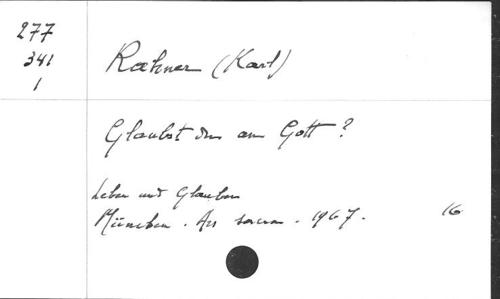 277
341
1
Rahner (Karl)
Glaubst du an Gott ?
Leben und Glauben
München . Ars sacra . 1967 .
16